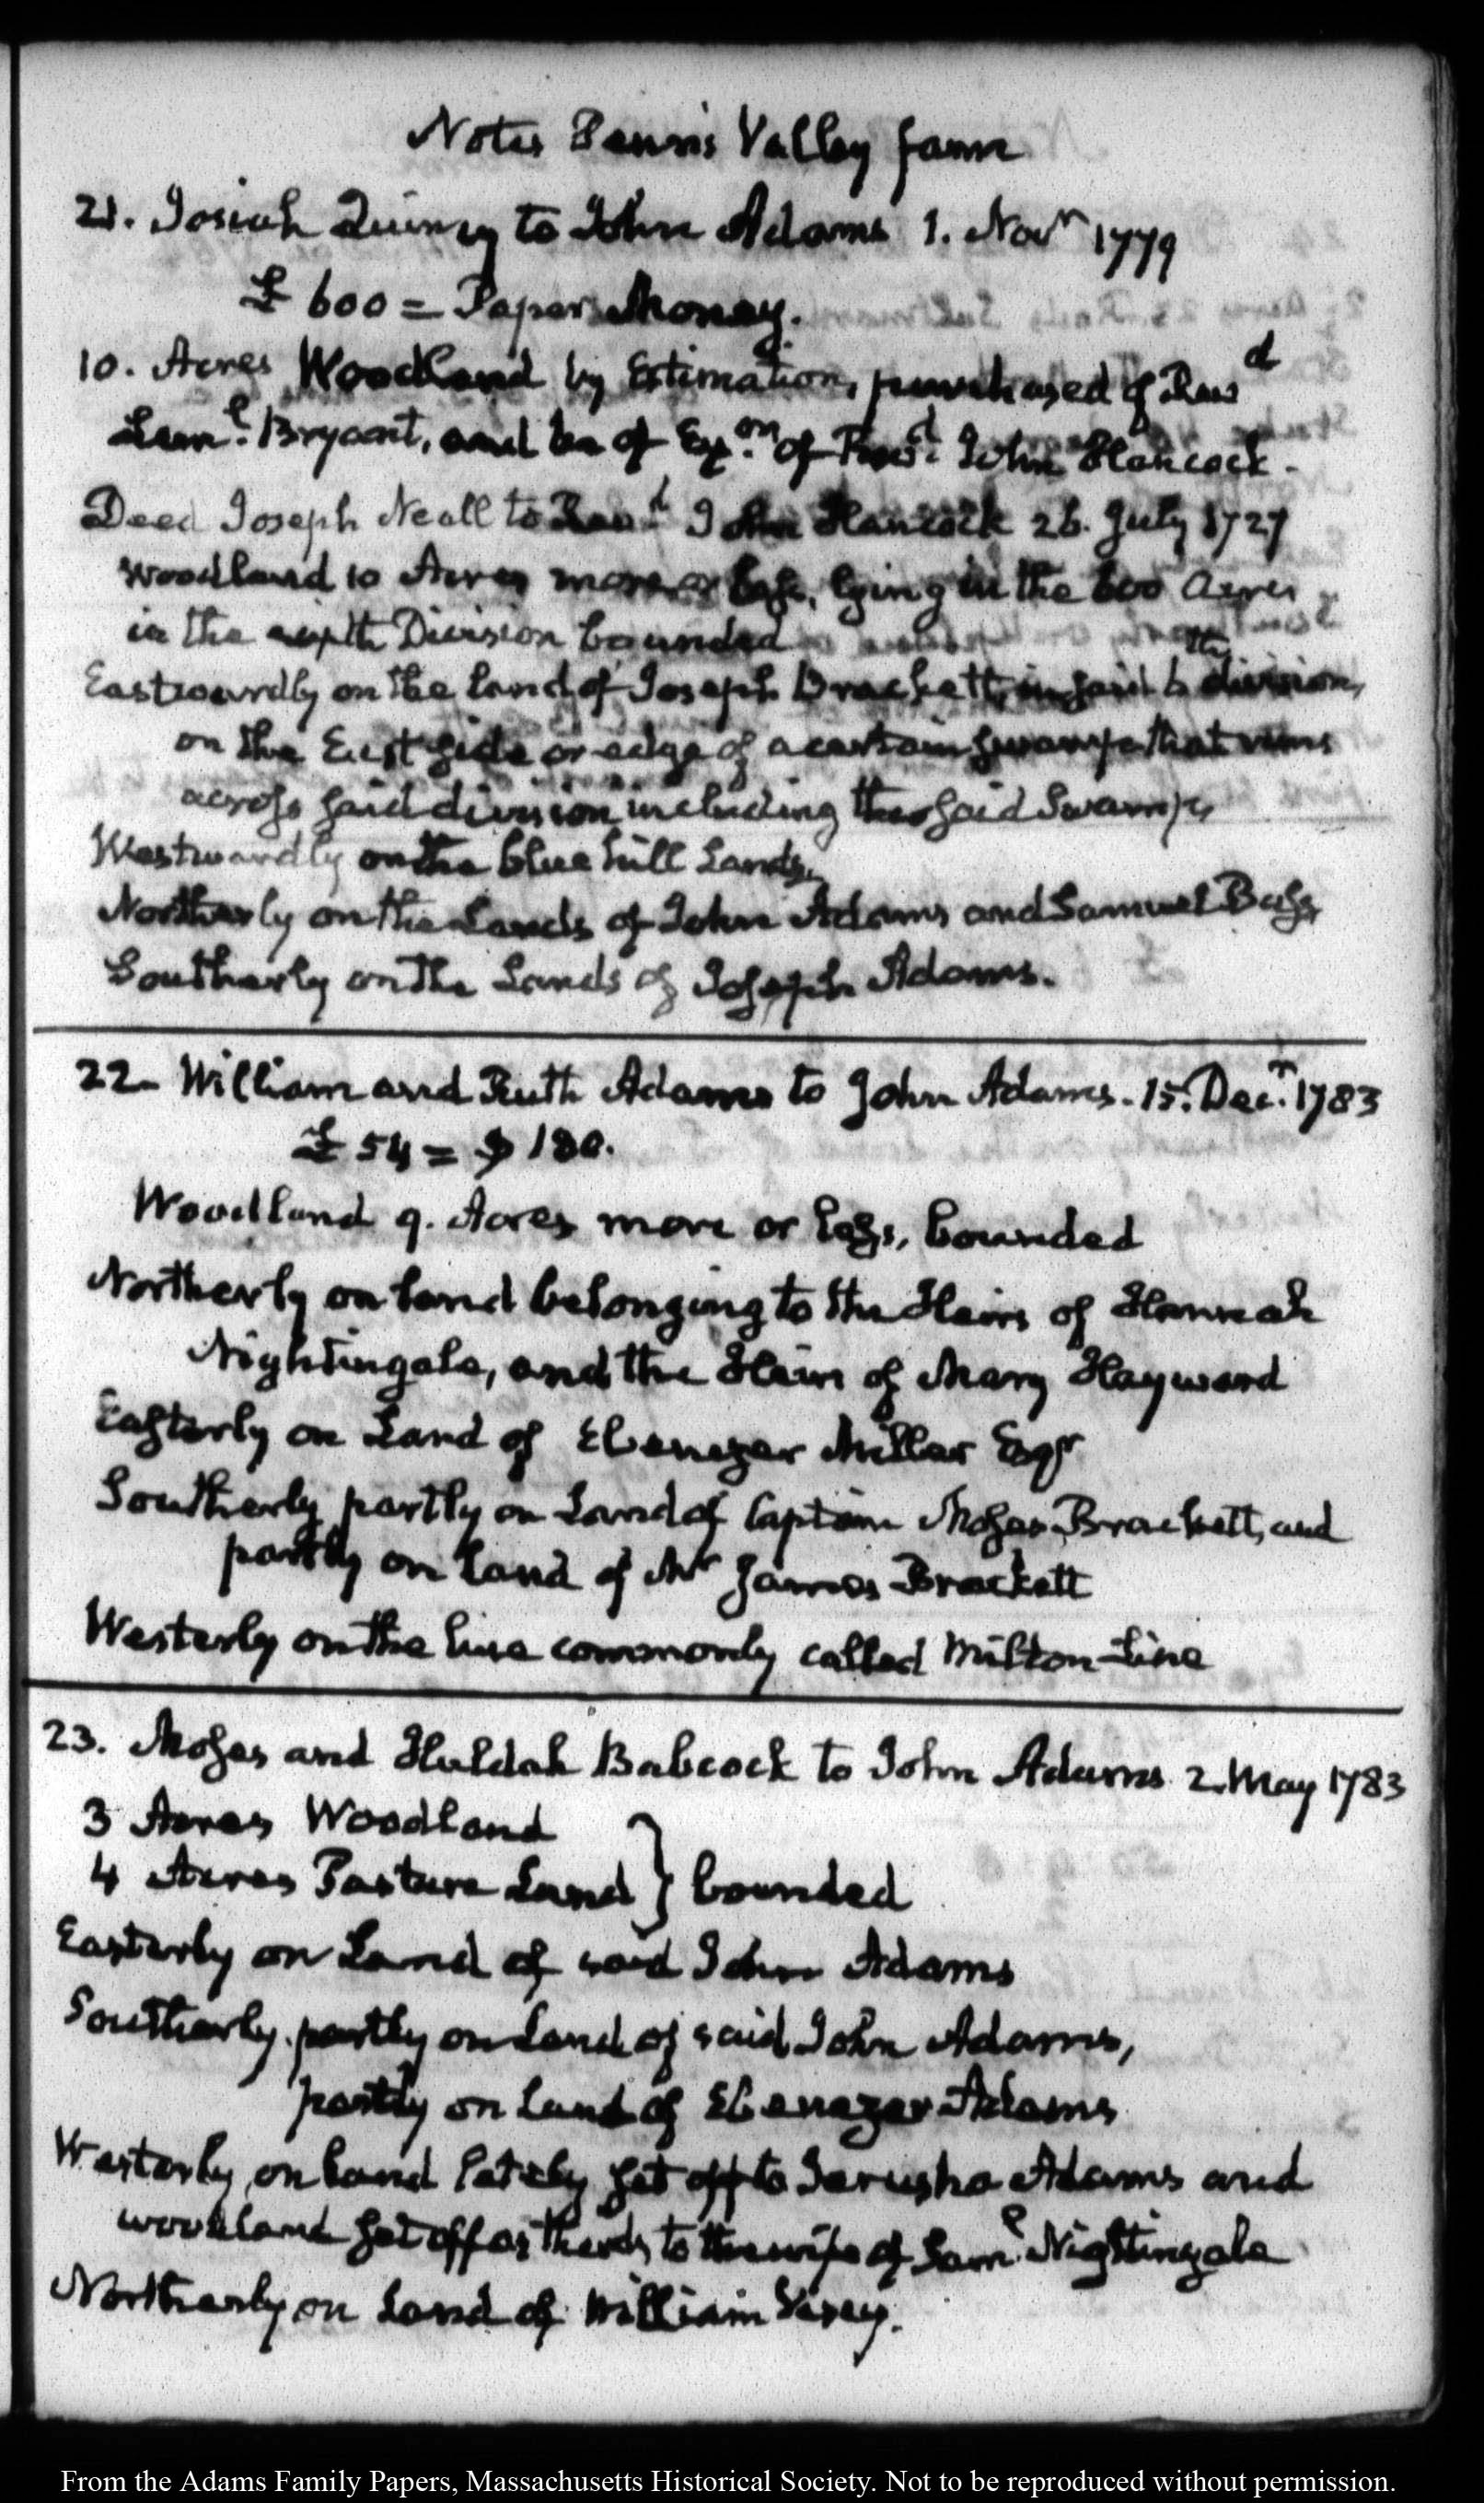 Notes Penn's Valley farm
21. Josiah Quincy to John Adams 1. Novr 1779
£ 600 = Paper Money.
10. Acres Woodland by Estimation, purchased of Revd
Leml. Bryant, and he of Exon. of Revd. John Hancock.
Deed Joseph Neall to Revd. John Hancock 26. July 1727
Woodland 10 Acres more or less, lying in the 600 Acres
in the sixth Division bounded
Eastwardly on the land of Joseph Brackett, in said 6th division,
on the East side or edge of a certain swamp that runs
across said division including the said Swamp,
Westwardly on the blue hill Lands,
Northerly on the Lands of John Adams and Samuel Bass,
Southerly on the Lands of Joseph Adams.
22. William and Ruth Adams to John Adams. 15. Decr. 1783
£ 54 = $ 180.
Woodland 9. Acres more or less, bounded
Northerly on land belonging to the Heirs of Hannah
Nightingale, and the Heirs of Mary Hayward
Easterly on Land of Ebenezer Miller Esqr
Southerly partly on Land of Captain Moses Brackett, and
partly on land of Mr James Brackett
Westerly on the line commonly called Milton-Line
23. Moses and Huldah Babcock to John Adams 2. May 1783
3 Acres Woodland
4 Acres Pasture Land } bounded
Easterly on Land of said John Adams
Southerly partly on Land of said John Adams,
partly on Land of Ebenezer Adams
Westerly on land lately set off to Jerusha Adams and
woodland set off as thirds to the wife of Saml. Nightingale
Northerly on Land of William Vesey.
From the Adams Family Papers, Massachusetts Historical Society. Not to be reproduced without permission.